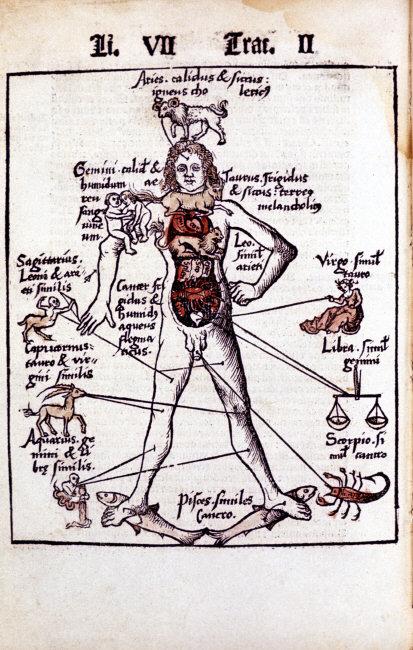 Li. VII Trac. II
Aries. calidus & siccus:
igneus cho lericus
Gemini. calid' &
humidum ae
reu
sang
uine
um.
Taurus. frigidus
& siccus: terreus
melancholicus
Leo.
simil'
arieti
Sagittarius.
Leoni & ari
eti similis
Cancer. fri
gidus &
humid'
aqueus
flegma
ticus.
Virgo. simil'
tauro
Capricornus:
tauro & vir-
gini similis
Libra. simil'
gemini
Aquarius. ge
mini & li
bre similis.
Scorpio. si
mil' cancro
Pisces. similes
Cancro.